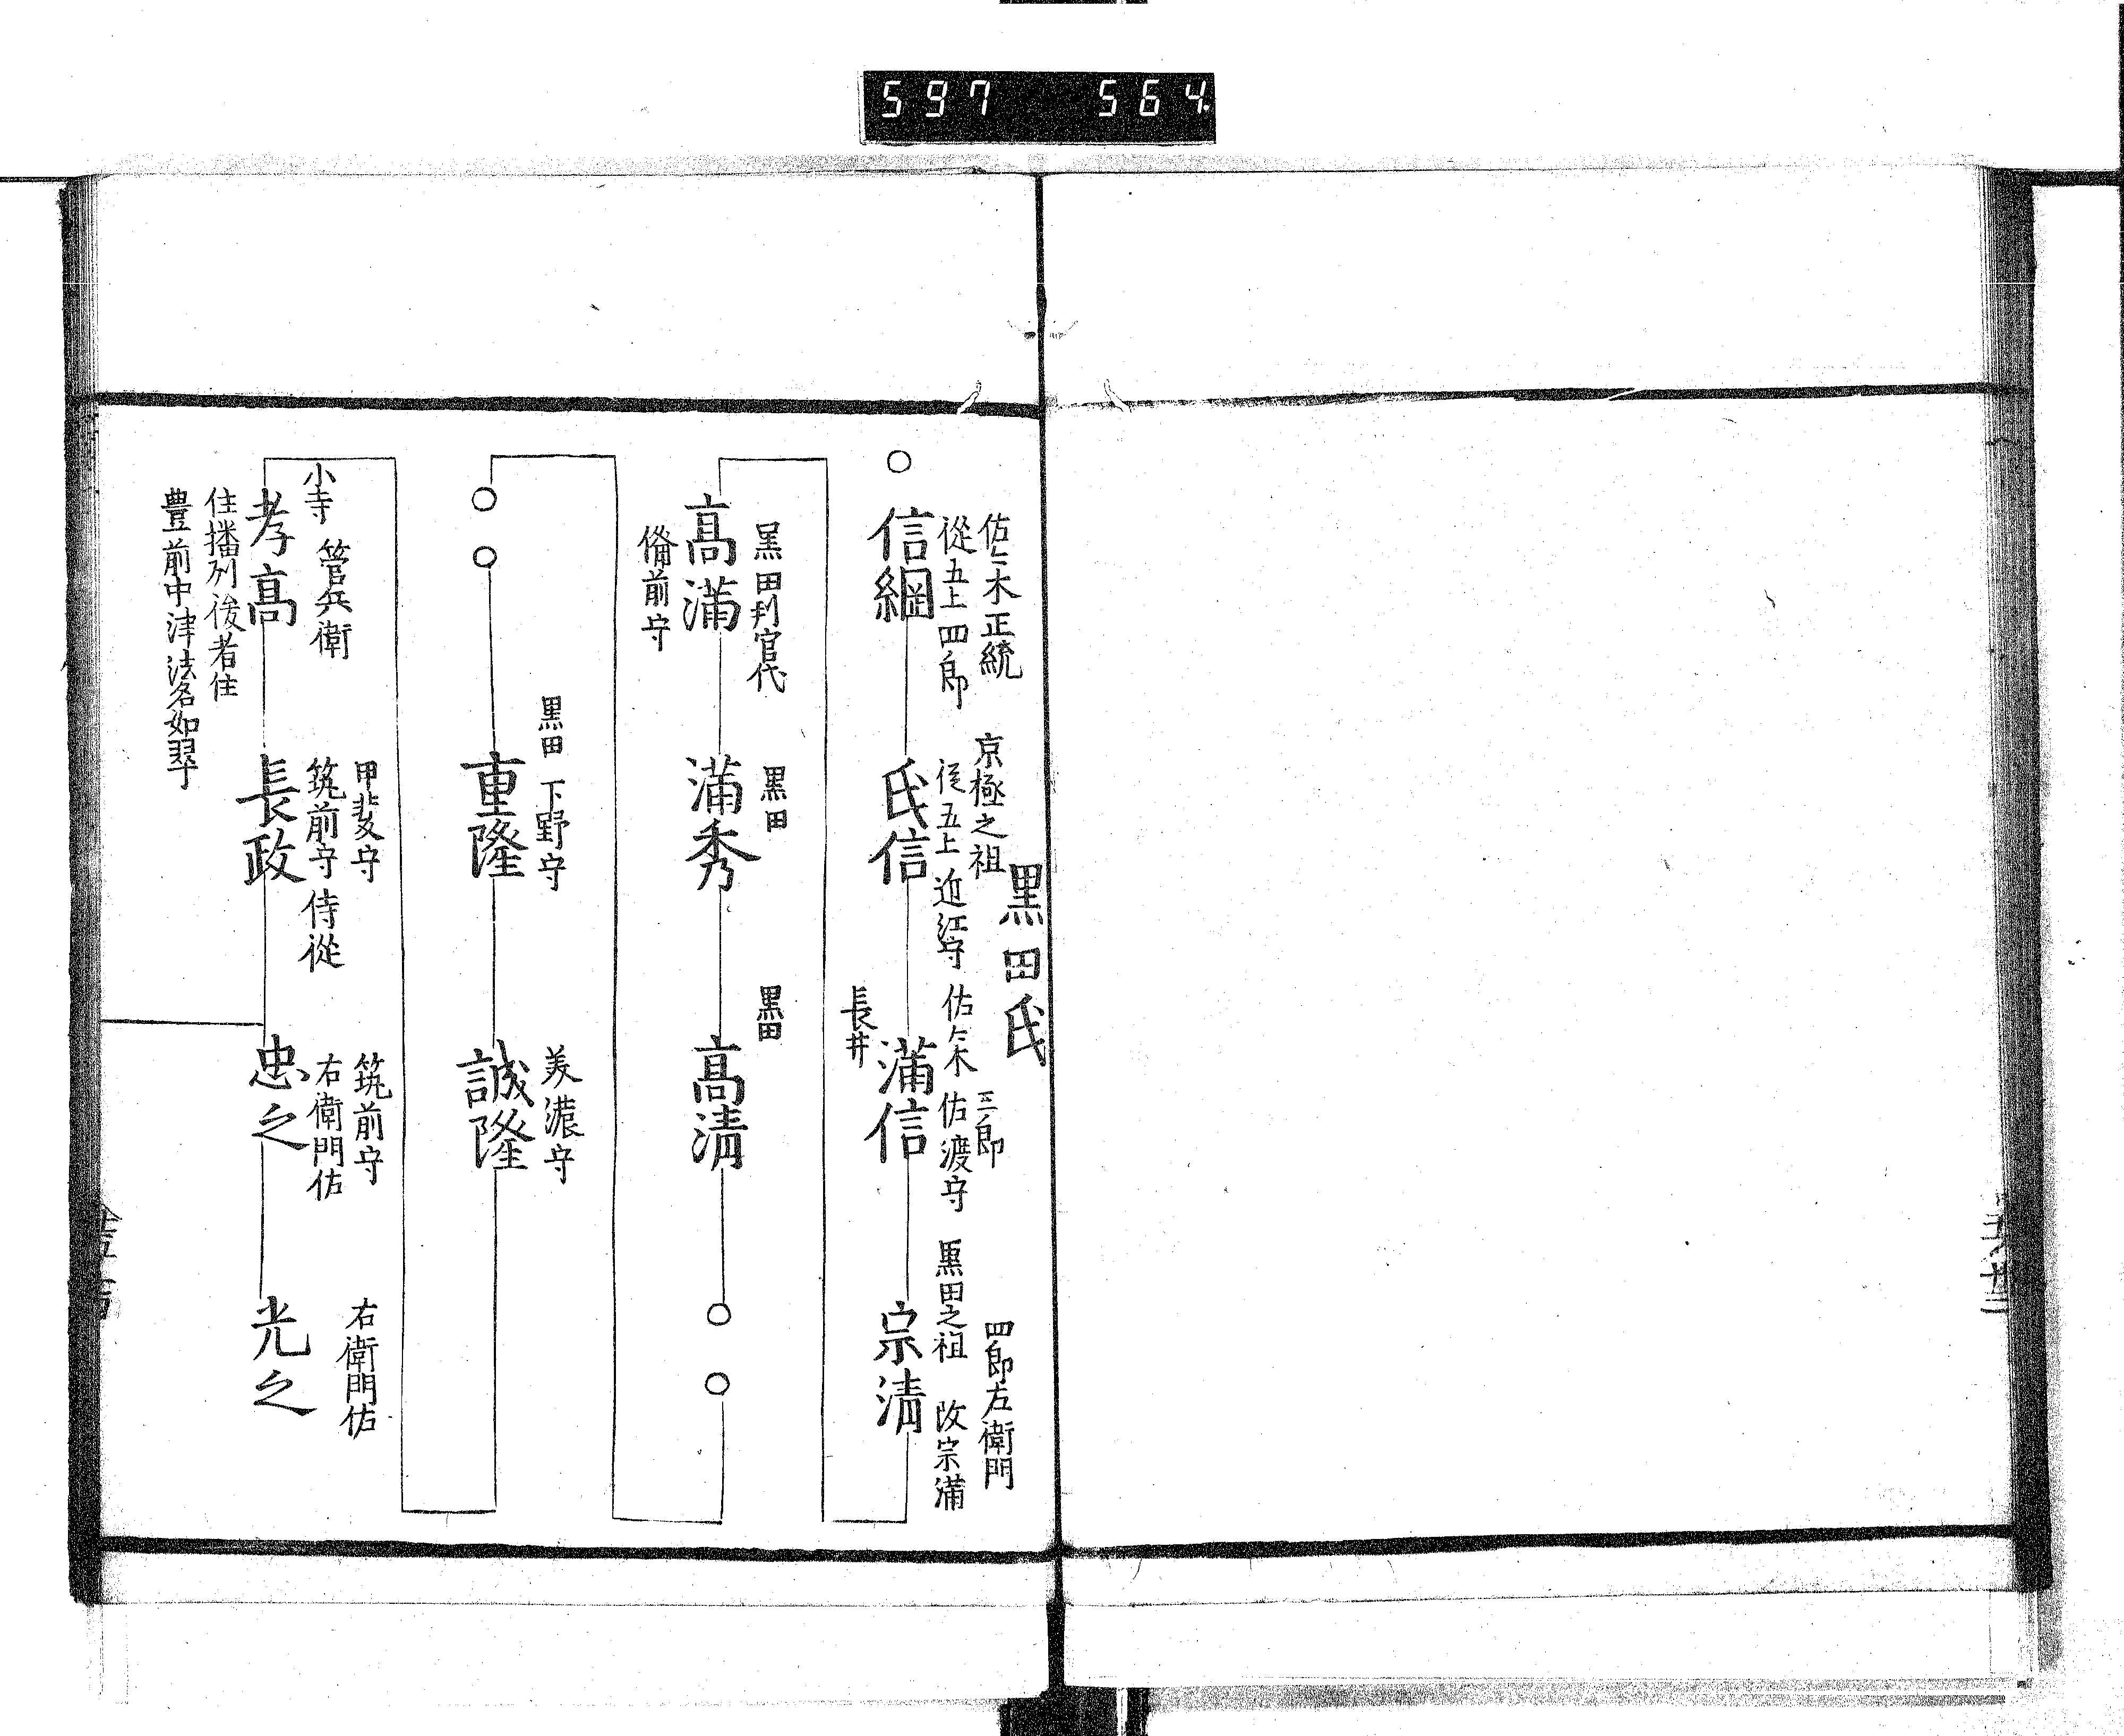 597 564
黒田氏
佐々木正統
從五上四郎
信綱
京極之祖
從五上近江守
氏信
三郎
佐々木佐渡守
満信
長井
四郎左衛門
黒田之祖 改宗満
宗清
黒田判官代
高満
偹前守
黒田
満秀
黒田
高清
○○
○○
黒田下野守
重隆
美濃守
誠隆
小寺 管兵衛
孝高
住播列後者住
豊前中津法名如翠
甲斐守
筑前守侍從
長政
筑前守
右衛門佐
忠之
右衛門佐
光之